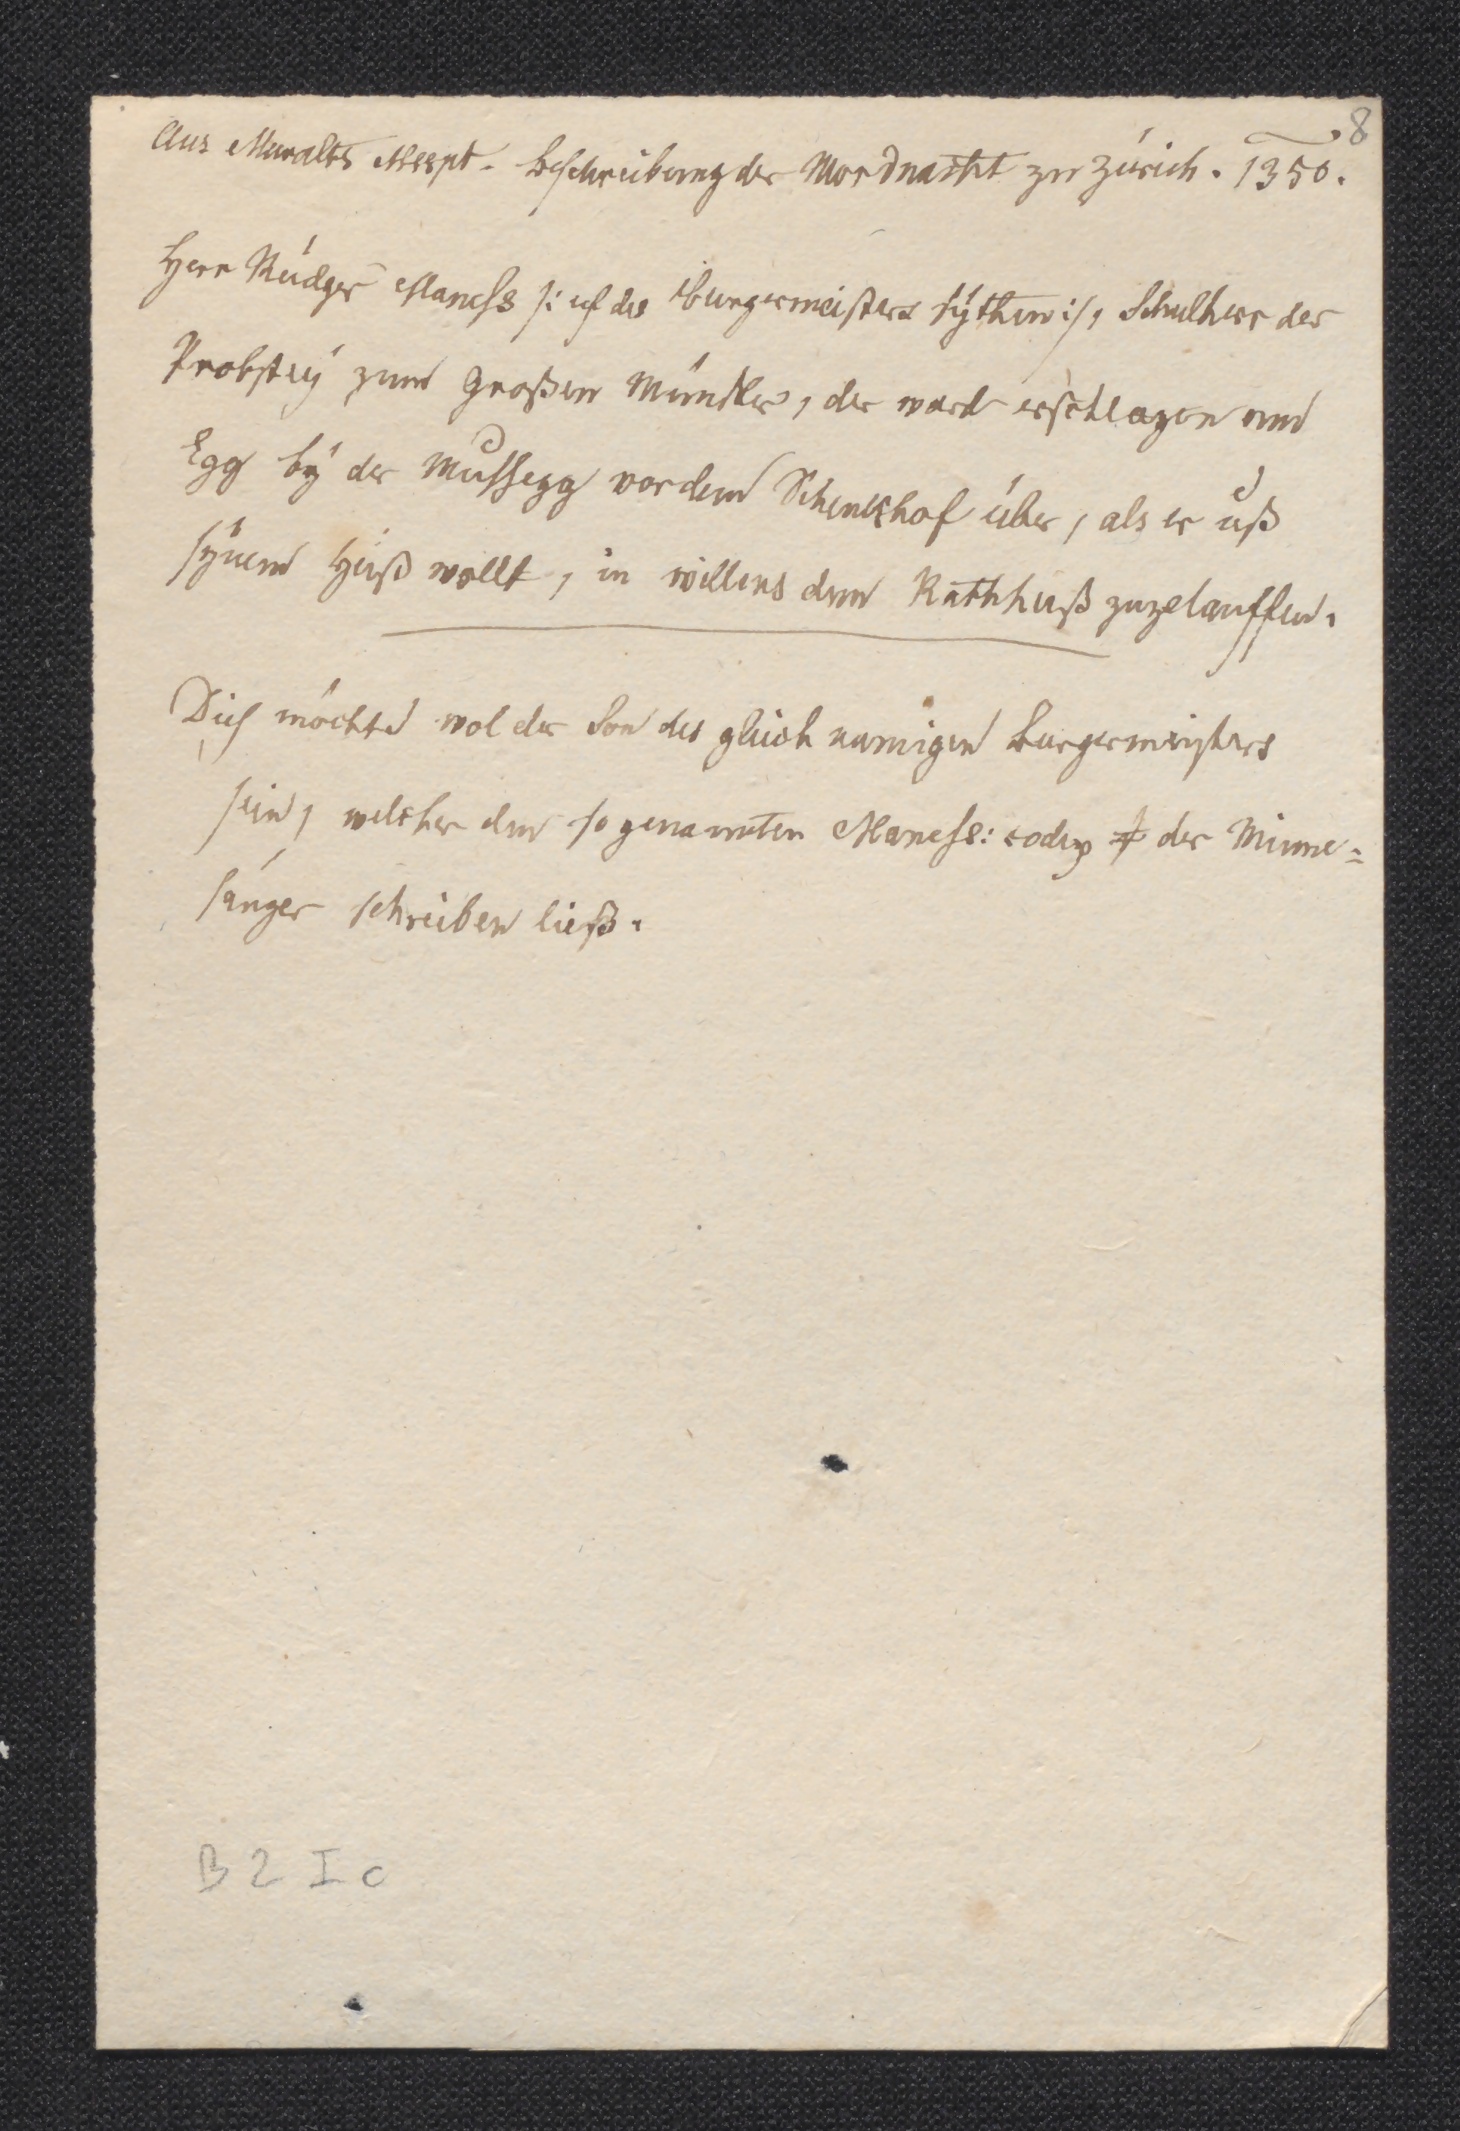 8
Aus Muralts Mscpt. Beschreibung der Mordnacht zu Zürich. 1350.
Herr Rüdger Maness /: uf des Burgermeisters sythen :/, Schulherr der
Probstey zum Großen Münster, der ward erschlagen am
Egg by der Mussegg vor dem Schenkhof über, als er uß
synem Huß wollt, in willens dem Rathhuß zuzelauffen.
Dieß möchte wol der Son des gleichnamigen Burgermeisters
sein, welcher den sogenannten Maness: codex der Minne=
sänger schreiben ließ.
B 2 I c